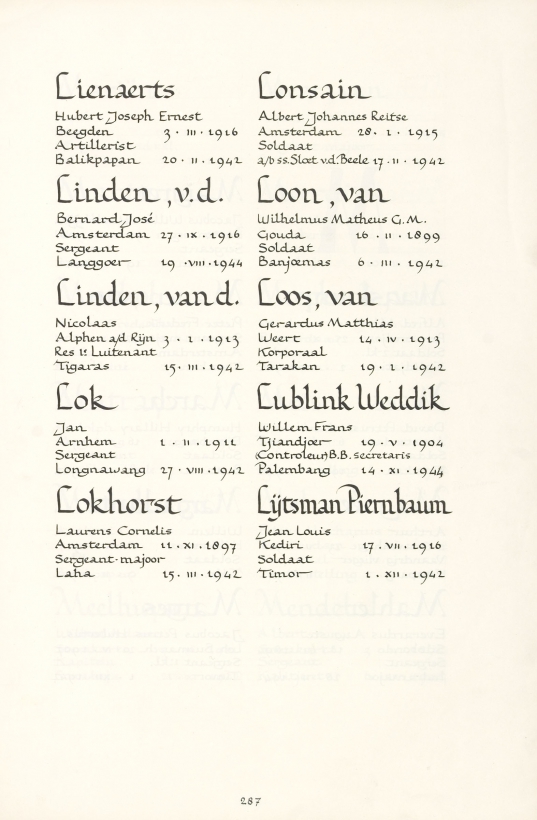 Lienaerts
Hubert Joseph Ernest
Beegden 3 · III · 1916
Artillerist
Balikpapan 20 · II · 1942
Linden, v.d.
Bernard José
Amsterdam 27 · IX · 1916
Sergeant
Langgoer 19 · VIII · 1944
Linden, van d.
Nicolaas
Alphen a/d Rijn 3 · I · 1913
Res 1e Luitenant
Tigaras 15 · III · 1942
Lok
Jan
Arnhem 1 · II · 1911
Sergeant
Longnawang 27 · VIII · 1942
Lokhorst
Laurens Cornelis
Amsterdam 11 · XI · 1897
Sergeant-majoor
Laha 15 · III · 1942
Lonsain
Albert Johannes Reitse
Amsterdam 28 · I · 1915
Soldaat
a/b ss. Sloet v.d. Beele 17 · II · 1942
Loon, van
Wilhelmus Matheus G.M.
Gouda 16 · II · 1899
Soldaat
Banjoemas 6 · III · 1942
Loos, van
Gerardus Matthias
Weert 14 · IV · 1913
Korporaal
Tarakan 19 · I · 1942
Lublink Weddik
Willem Frans
Tjiandjoer 19 · V · 1904
(Controleur) B.B. secretaris
Palembang 14 · XI · 1944
Lijtsman Piernbaum
Jean Louis
Kediri 17 · VII · 1916
Soldaat
Timor 1 · XII · 1942
287